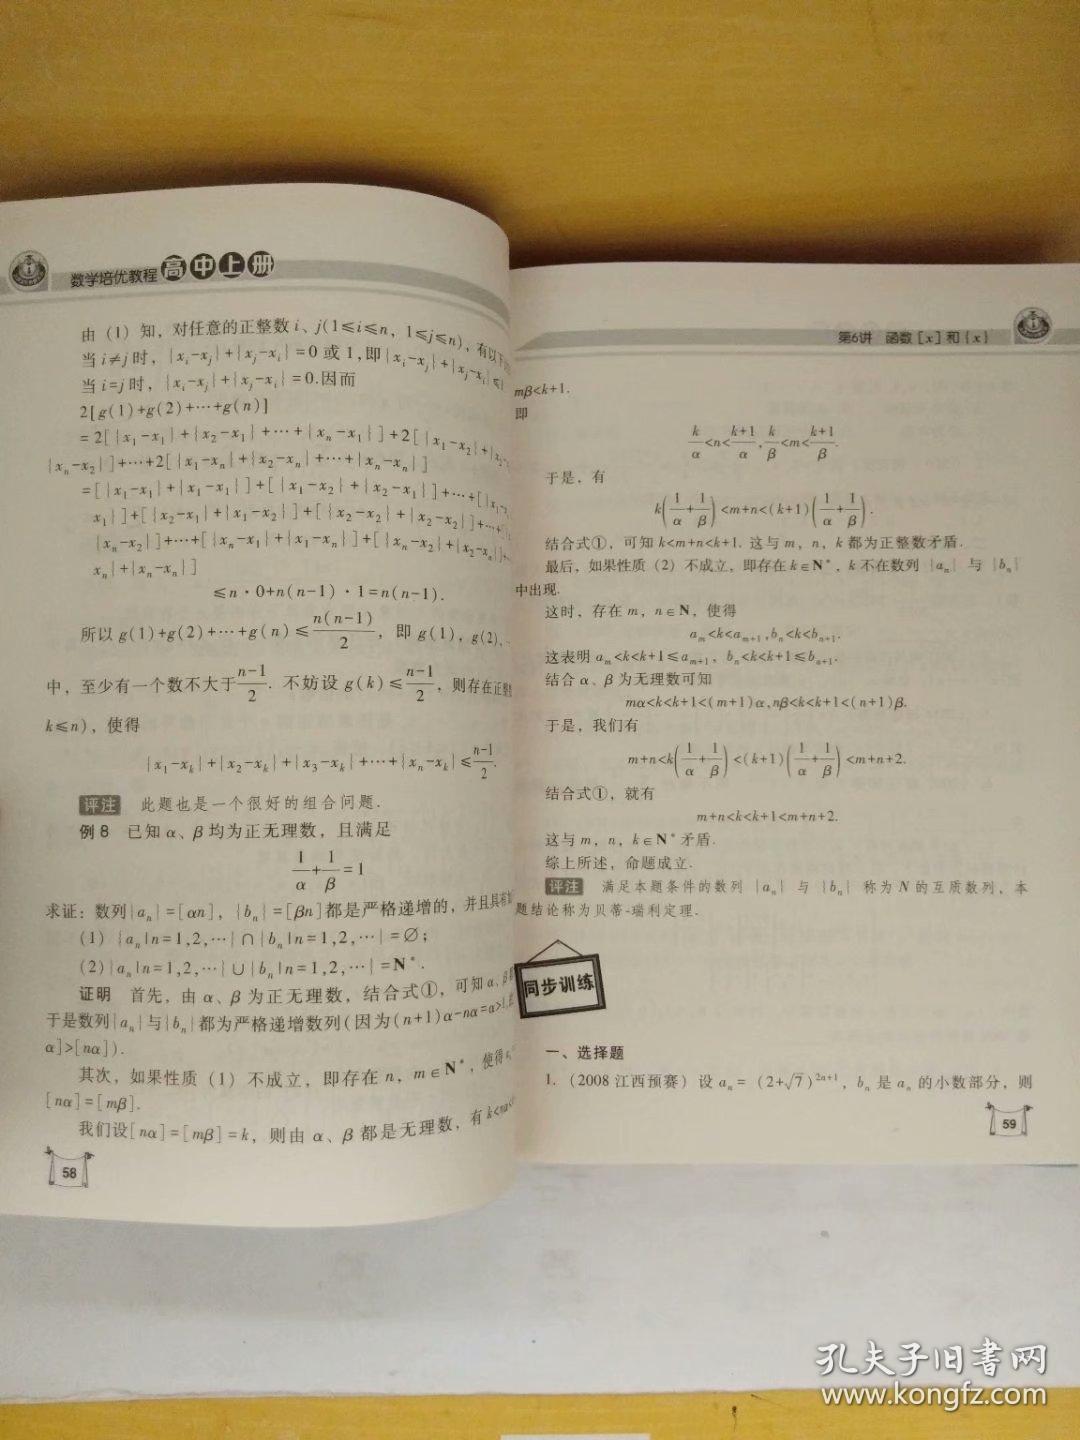 数学培优教程 高中上册
由（1）知，对任意的正整数 i、j(1≤i≤n，1≤j≤n)，有以下
当 i≠j 时，{xi-xj}+{xj-xi}=0 或 1,即{xi-xj}+{xj-xi}≤1
当 i=j 时，{xi-xj}+{xj-xi}=0.因而
2[g(1)+g(2)+…+g(n)]
=2[{x1-x1}+{x2-x1}+…+{xn-x1}]+2[{x1-x2}+{x2-
{xn-x2}]+…+2[{x1-xn}+{x2-xn}+…+{xn-xn}]
=[{x1-x1}+{x1-x1}]+[{x1-x2}+{x2-x1}]+…+[{x1-
x1}]+[{x2-x1}+{x1-x2}]+[{x2-x2}+{x2-x2}]+…+
{xn-x2}]+…+[{xn-x1}+{x1-xn}]+[{xn-x2}+{x2-xn}]+
xn}+{xn-xn}]
≤n·0+n(n-1)·1=n(n-1).
所以 g(1)+g(2)+…+g(n)≤n(n-1)/2，即 g(1)，g(2)，
中，至少有一个数不大于(n-1)/2. 不妨设 g(k)≤(n-1)/2，则存在正整
k≤n)，使得
{x1-xk}+{x2-xk}+{x3-xk}+…+{xn-xk}≤(n-1)/2.
评注 此题也是一个很好的组合问题.
例 8 已知 α、β 均为正无理数，且满足
1/α+1/β=1
求证：数列{an}=[αn]，{bn}=[βn]都是严格递增的，并且具有如
(1){an|n=1,2,…}∩{bn|n=1,2,…}=∅；
(2){an|n=1,2,…}∪{bn|n=1,2,…}=N*.
证明 首先，由 α、β 为正无理数，结合式①，可知 α、β
于是数列{an}与{bn}都为严格递增数列(因为(n+1)α-nα=α>1,
α]>[nα]).
其次，如果性质（1）不成立，即存在 n，m∈N*，使得
[nα]=[mβ].
我们设[nα]=[mβ]=k，则由 α、β 都是无理数，有 k<nα<
58
第6讲 函数[x]和{x}
mβ<k+1.
即
k/α<n<(k+1)/α,k/β<m<(k+1)/β.
于是，有
k(1/α+1/β)<m+n<(k+1)(1/α+1/β).
结合式①，可知 k<m+n<k+1. 这与 m，n，k 都为正整数矛盾.
最后，如果性质（2）不成立，即存在 k∈N*，k 不在数列 {an} 与 {bn}
中出现.
这时，存在 m，n∈N，使得
am<k<am+1,bn<k<bn+1.
这表明 am<k<k+1≤am+1，bn<k<k+1≤bn+1.
结合 α、β 为无理数可知
mα<k<k+1<(m+1)α,nβ<k<k+1<(n+1)β.
于是，我们有
m+n<k(1/α+1/β)<(k+1)(1/α+1/β)<m+n+2.
结合式①，就有
m+n<k<k+1<m+n+2.
这与 m，n，k∈N*矛盾.
综上所述，命题成立.
评注 满足本题条件的数列 {an} 与 {bn} 称为 N 的互质数列，本
题结论称为贝蒂-瑞利定理.
同步训练
一、选择题
1.（2008 江西预赛）设 an=（2+√7）2n+1，bn 是 an 的小数部分，则
59
孔夫子旧书网
www.kongfz.com